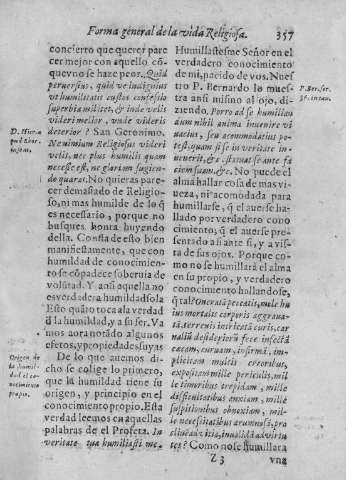 Forma general de la vida Religiosa. 357
concierto que querer pare
cer mejor con aquello cõ
q̃ uevno se haze peor. Quid
peruersius, quid ve indignius
vt humilitatis custos confessio
superbiæ militet, & inde velis
videri melior, vnde videris
deterior? San Geronimo.
Ne nimium Religiosus videri
velis, nec plus humilis quam
necesse est, ne gloriam fugien-
do quæras. No quieras pare-
cer demasiado de Religio-
so, ni mas humilde de lo q̃
es necessario, porque no
busques honra huyendo
della. Consta de esto bien
manifiestamente, que con
humildad de conocimien-
to se cõpadece soberuia de
volũtad. Y ansi aquella no
es verdadera humildad sola
Esto quãto toca a la verdad
d̃ la humildad, y a su ser. Va
mos aora notãdo algunos
efetos, y propiedades suyas
De lo que auemos di-
cho se colige lo primero,
que la humildad tiene su
origen, y principio en el
conocimiento propio. Esta
verdad leemos en aquellas
palabras de el Profeta. In
veritate tua humiliasti me.
D. Hier.
Origen de
la humil-
dad el co-
nocimiento
propio.
Humillasteme Señor en el
verdadero conocimiento
de mi, nacido de vos. Nues-
tro P. Bernardo lo mues-
tra ansi mismo al ojo, di-
ziendo. Porro ad se humilian
dum nihil anima inuenire vi
uacius, seu acomodatius po-
test. quam si se in veritate in-
uenerit, &c. statuat se ante fa
ciem suam, &c. No puede el
alma hallar cosa de mas vi-
ueza, ni acomodada para
humillarse, q̃ el auerse ha-
llado por verdadero cono
cimiento; q̃ el auerse pre-
sentado assi ante si, y a vis-
ta de sus ojos. Porque co-
mo no se humillarà el alma
en su propio, y verdadero
conocimiento hallandose,
q̃ tal? Onerata peccatis, mole hu
ius mortalis corporis aggraua-
ta, terrenis intricata curis, car
nalium desideriorũ fæce infecta
cæcam, curuam, infirmã, im-
plicitam multis erroribus,
expositam mille periculis, mil
le timoribus trepidam, mille
difficultatibus anxiam, mille
suspitionibus obnoxiam, mil-
le necessitatibus ærumnosã, pro
cliuẽ ad vitia, inualidã ad virtu
tes? Como no se humillara
P. Ber. ser.
Z 3 vna